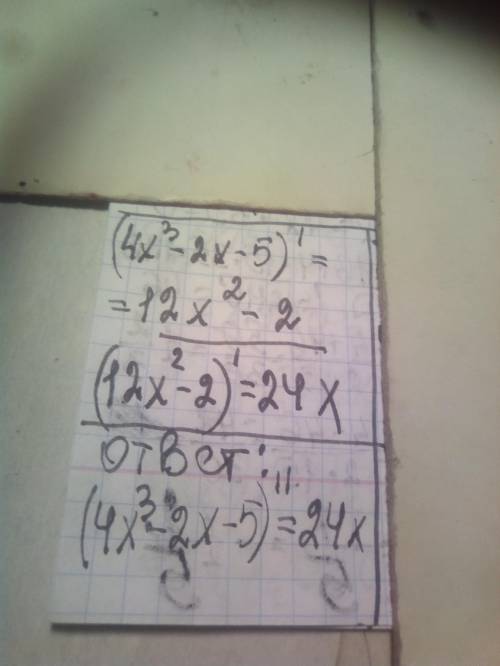 (4x³-2x-5)' =
= 12x² - 2
(12x²-2)' = 24x
ответ:
(4x³-2x-5)'' = 24x